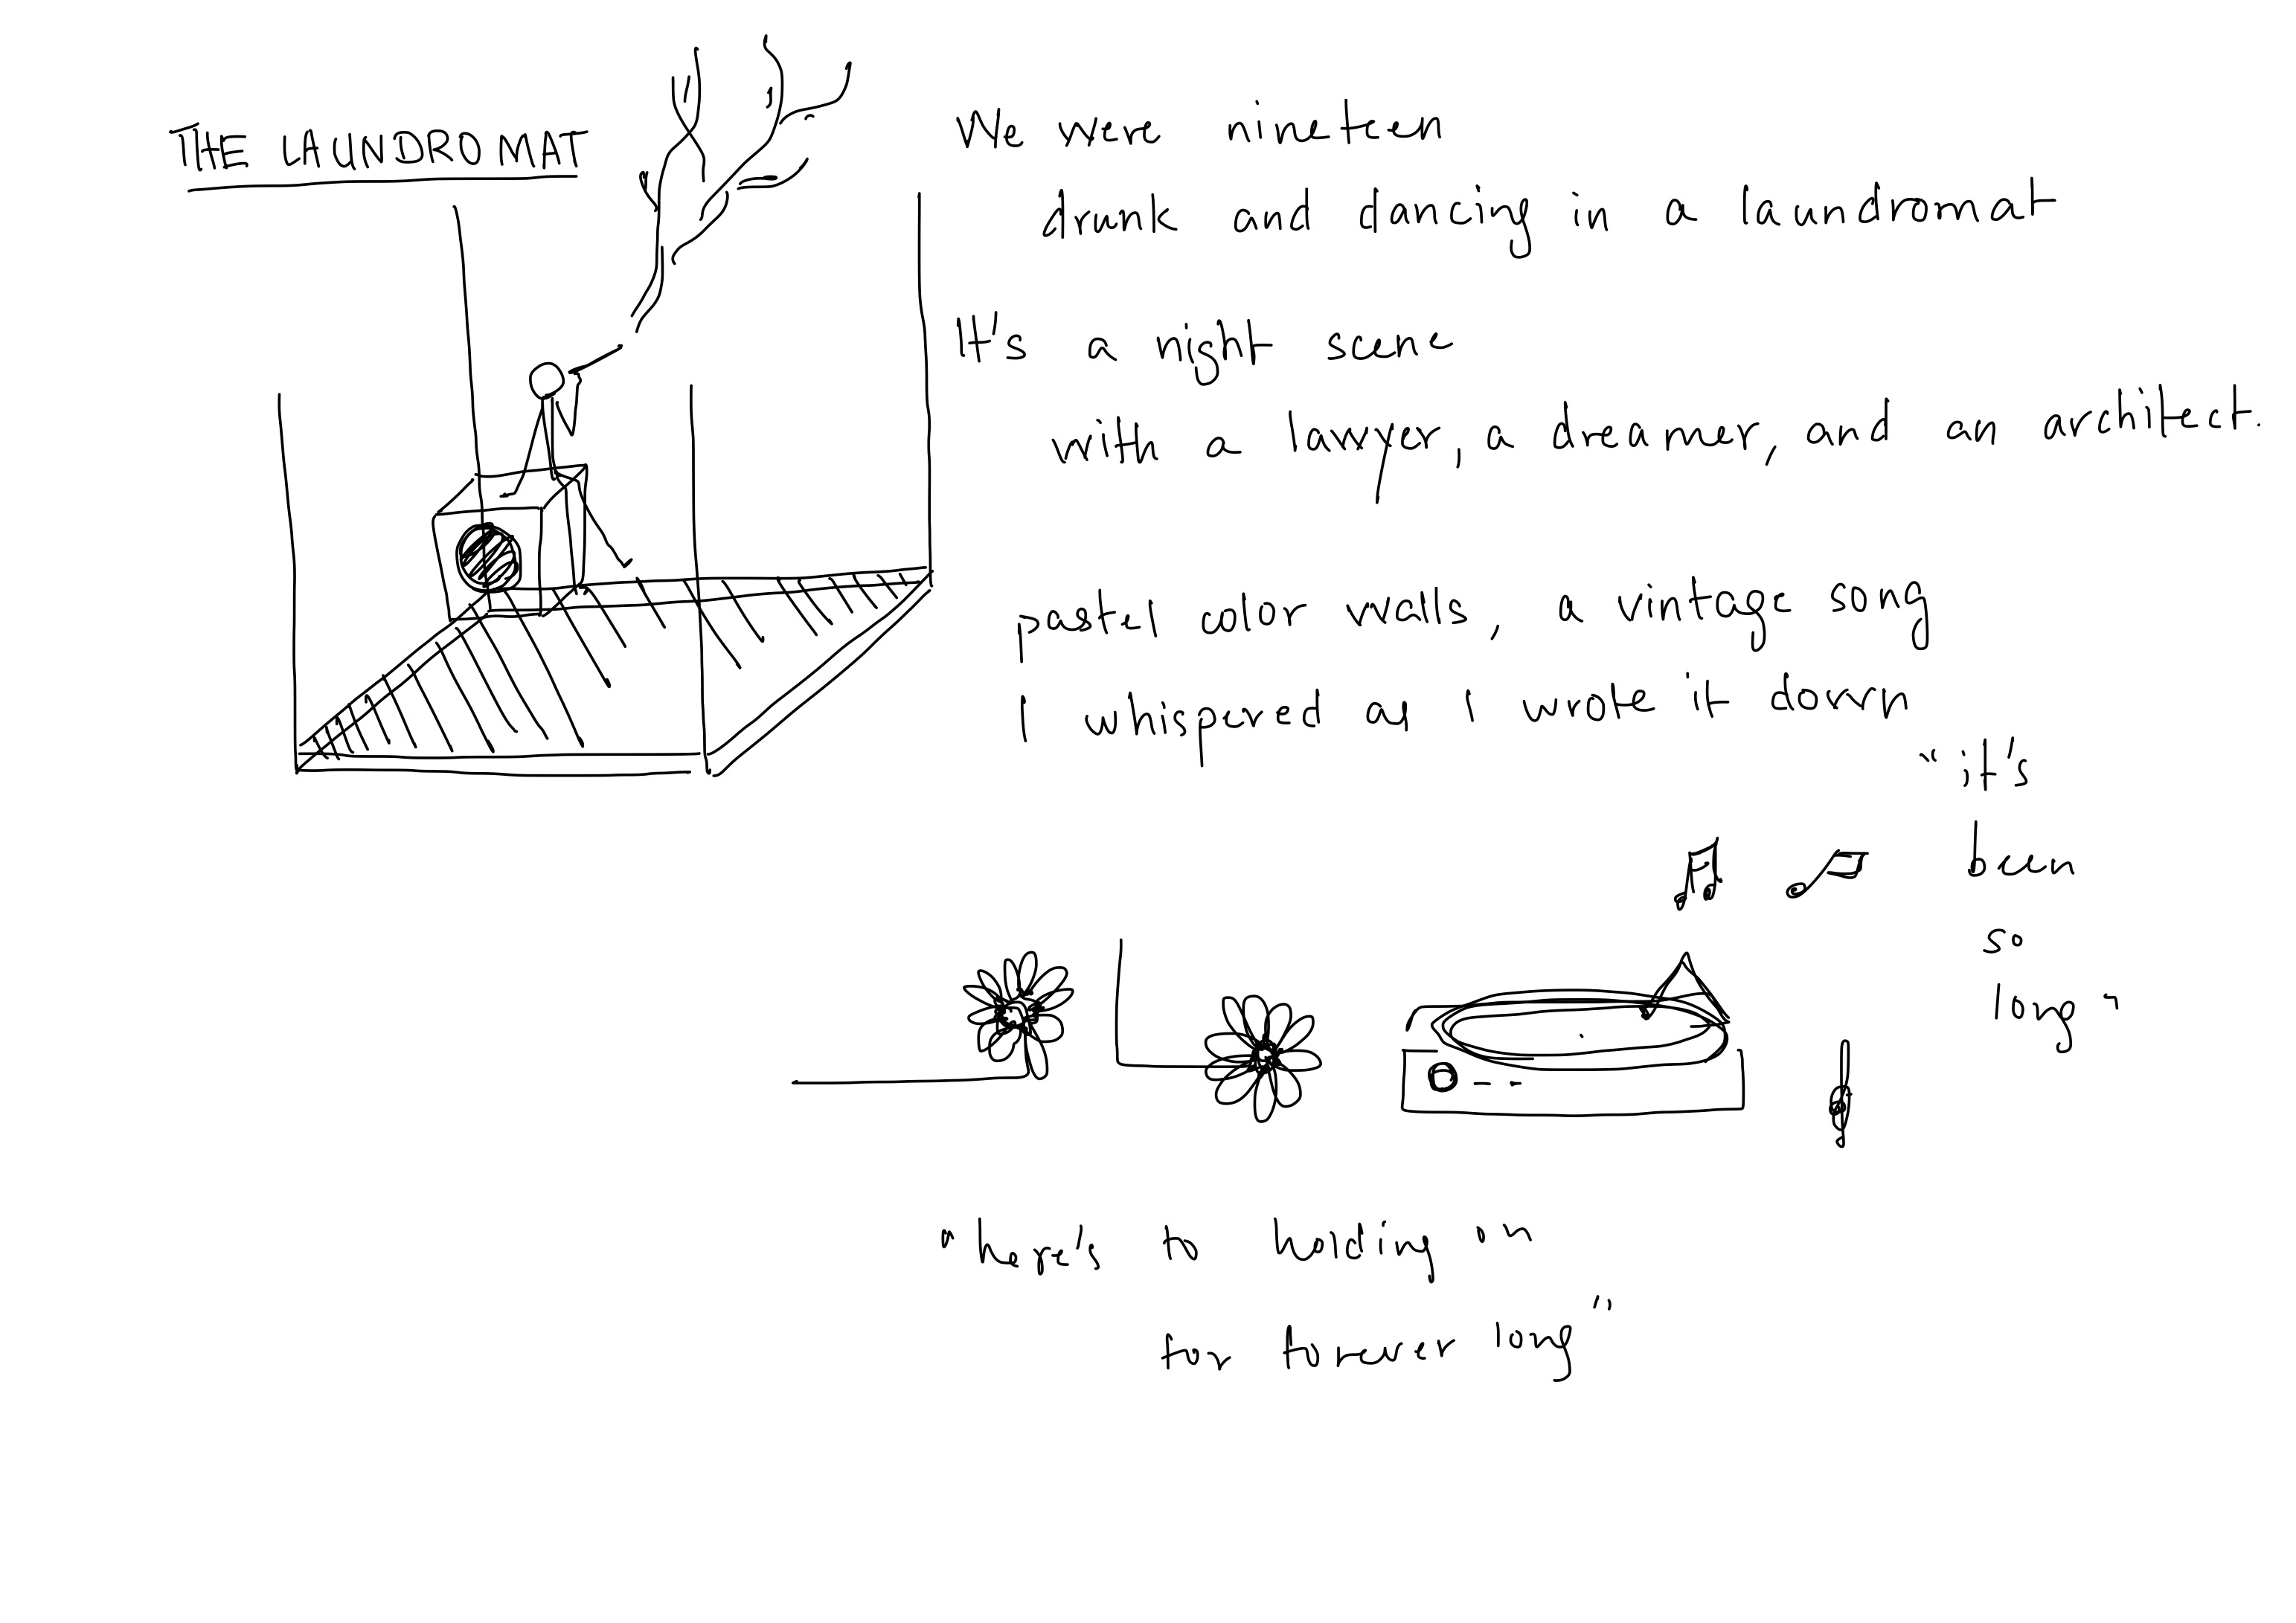 THE LAUNDROMAT
We were nineteen
drunk and dancing in a laundromat
It's a night scene
with a lawyer, a dreamer, and an architect.
pastel color walls, a vintage song
I whispered as I wrote it down
"it's
been
so
long"
"here's to holding on
for forever long"